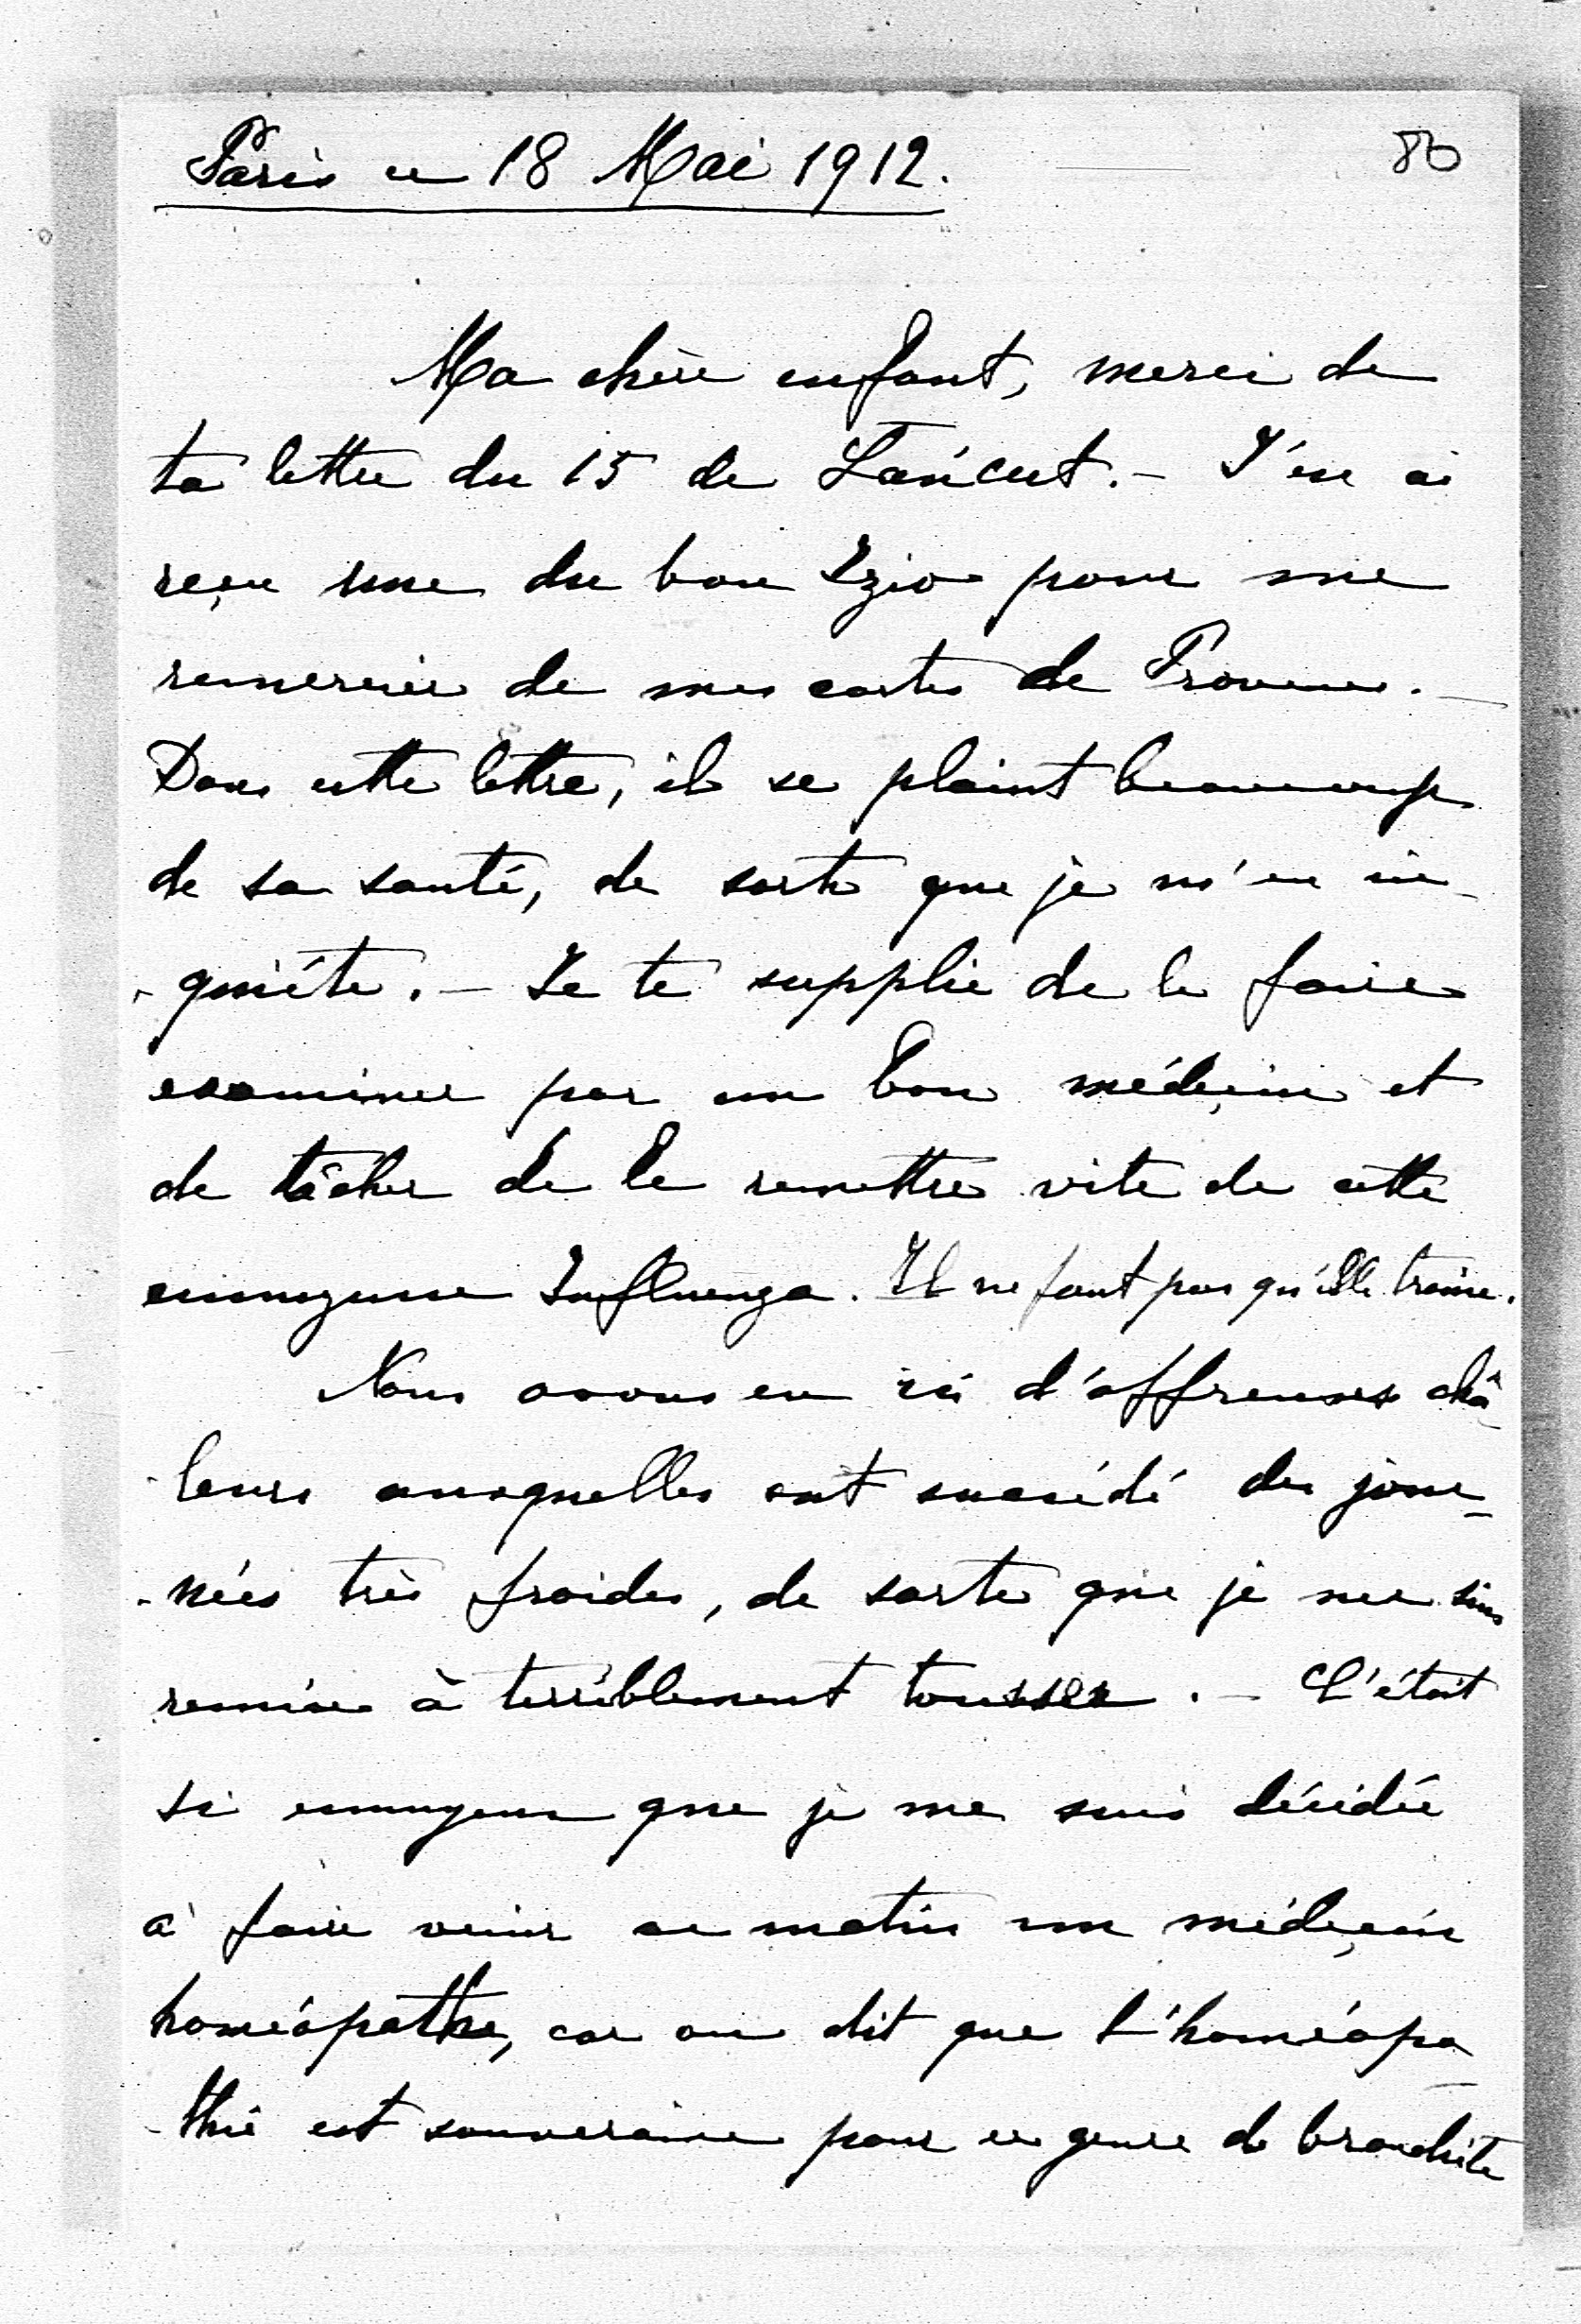 Paris ce 18 Mai 1912.
86
Ma chère enfant, merci de
ta lettre du 15 de Łańcut. – J'en ai
reçu une du bon Izio pour me
remercier de mes cartes de Provence. –
Dans cette lettre, il se plaint beaucoup
de sa santé, de sorte que je m'en in-
-quiète. – Je te supplie de le faire
examiner par un bon médeçin et
de tâcher de le remettre vite de cette
ennuyeuse Influenza. Il ne faut pas qu'elle traine.
Nous avons eu ici d'affreuses châ-
-leurs auxquelles ont succédé des jour-
-nées très froides, de sorte que je me suis
remise à terriblement tousser. – C'était
si ennuyeux que je me suis décidée
à faire venir ce matin un médeçin
homéopathe, car on dit que l'homéopa-
-thie est souveraine pour ce genre de bronchite